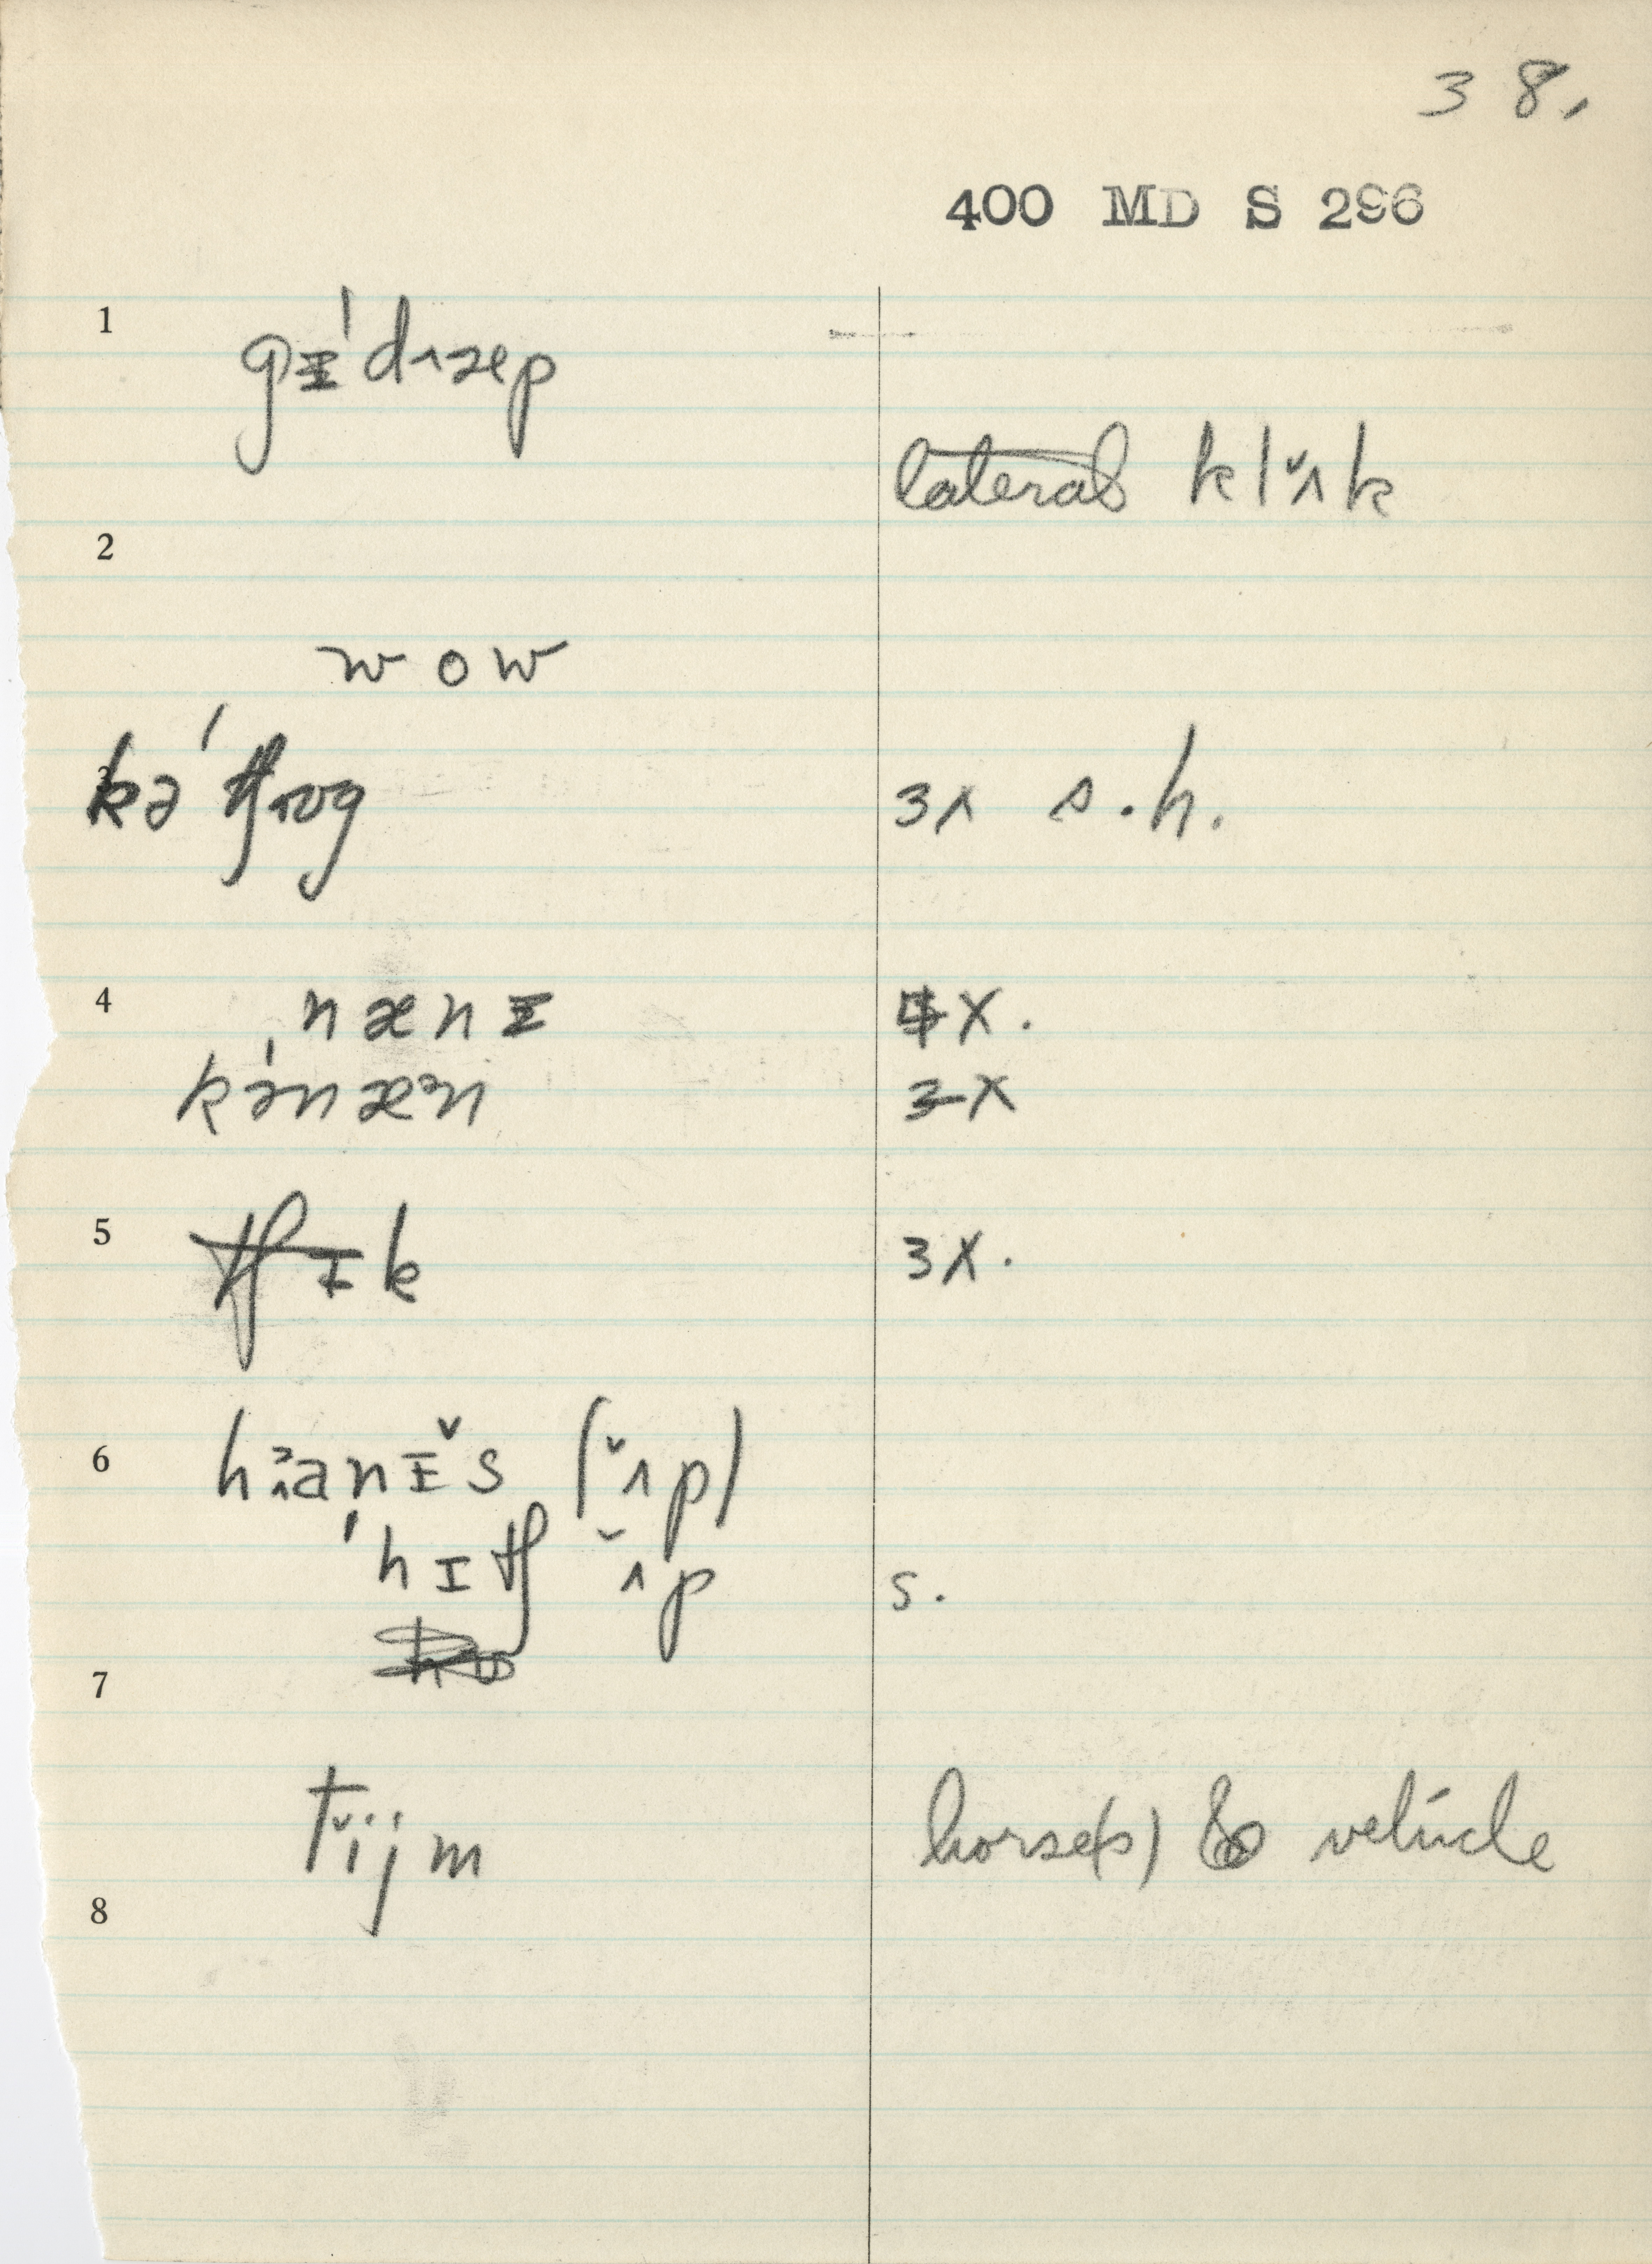 38.
400 MD S 296
1
gɪˈdʌʒep
lateral klˇʌk
2
wow
3 kəˈtʃɪʊg 3x s.h.
4 nænɪ 4X.
kˈənæᵊn 3X
5 tʃɪk 3X.
6 hᵊʌanɪˇs (ˇʌp)
ˈhɪtʃ ˇʌp s.
7
tˇijm horse(s) & vehicle
8